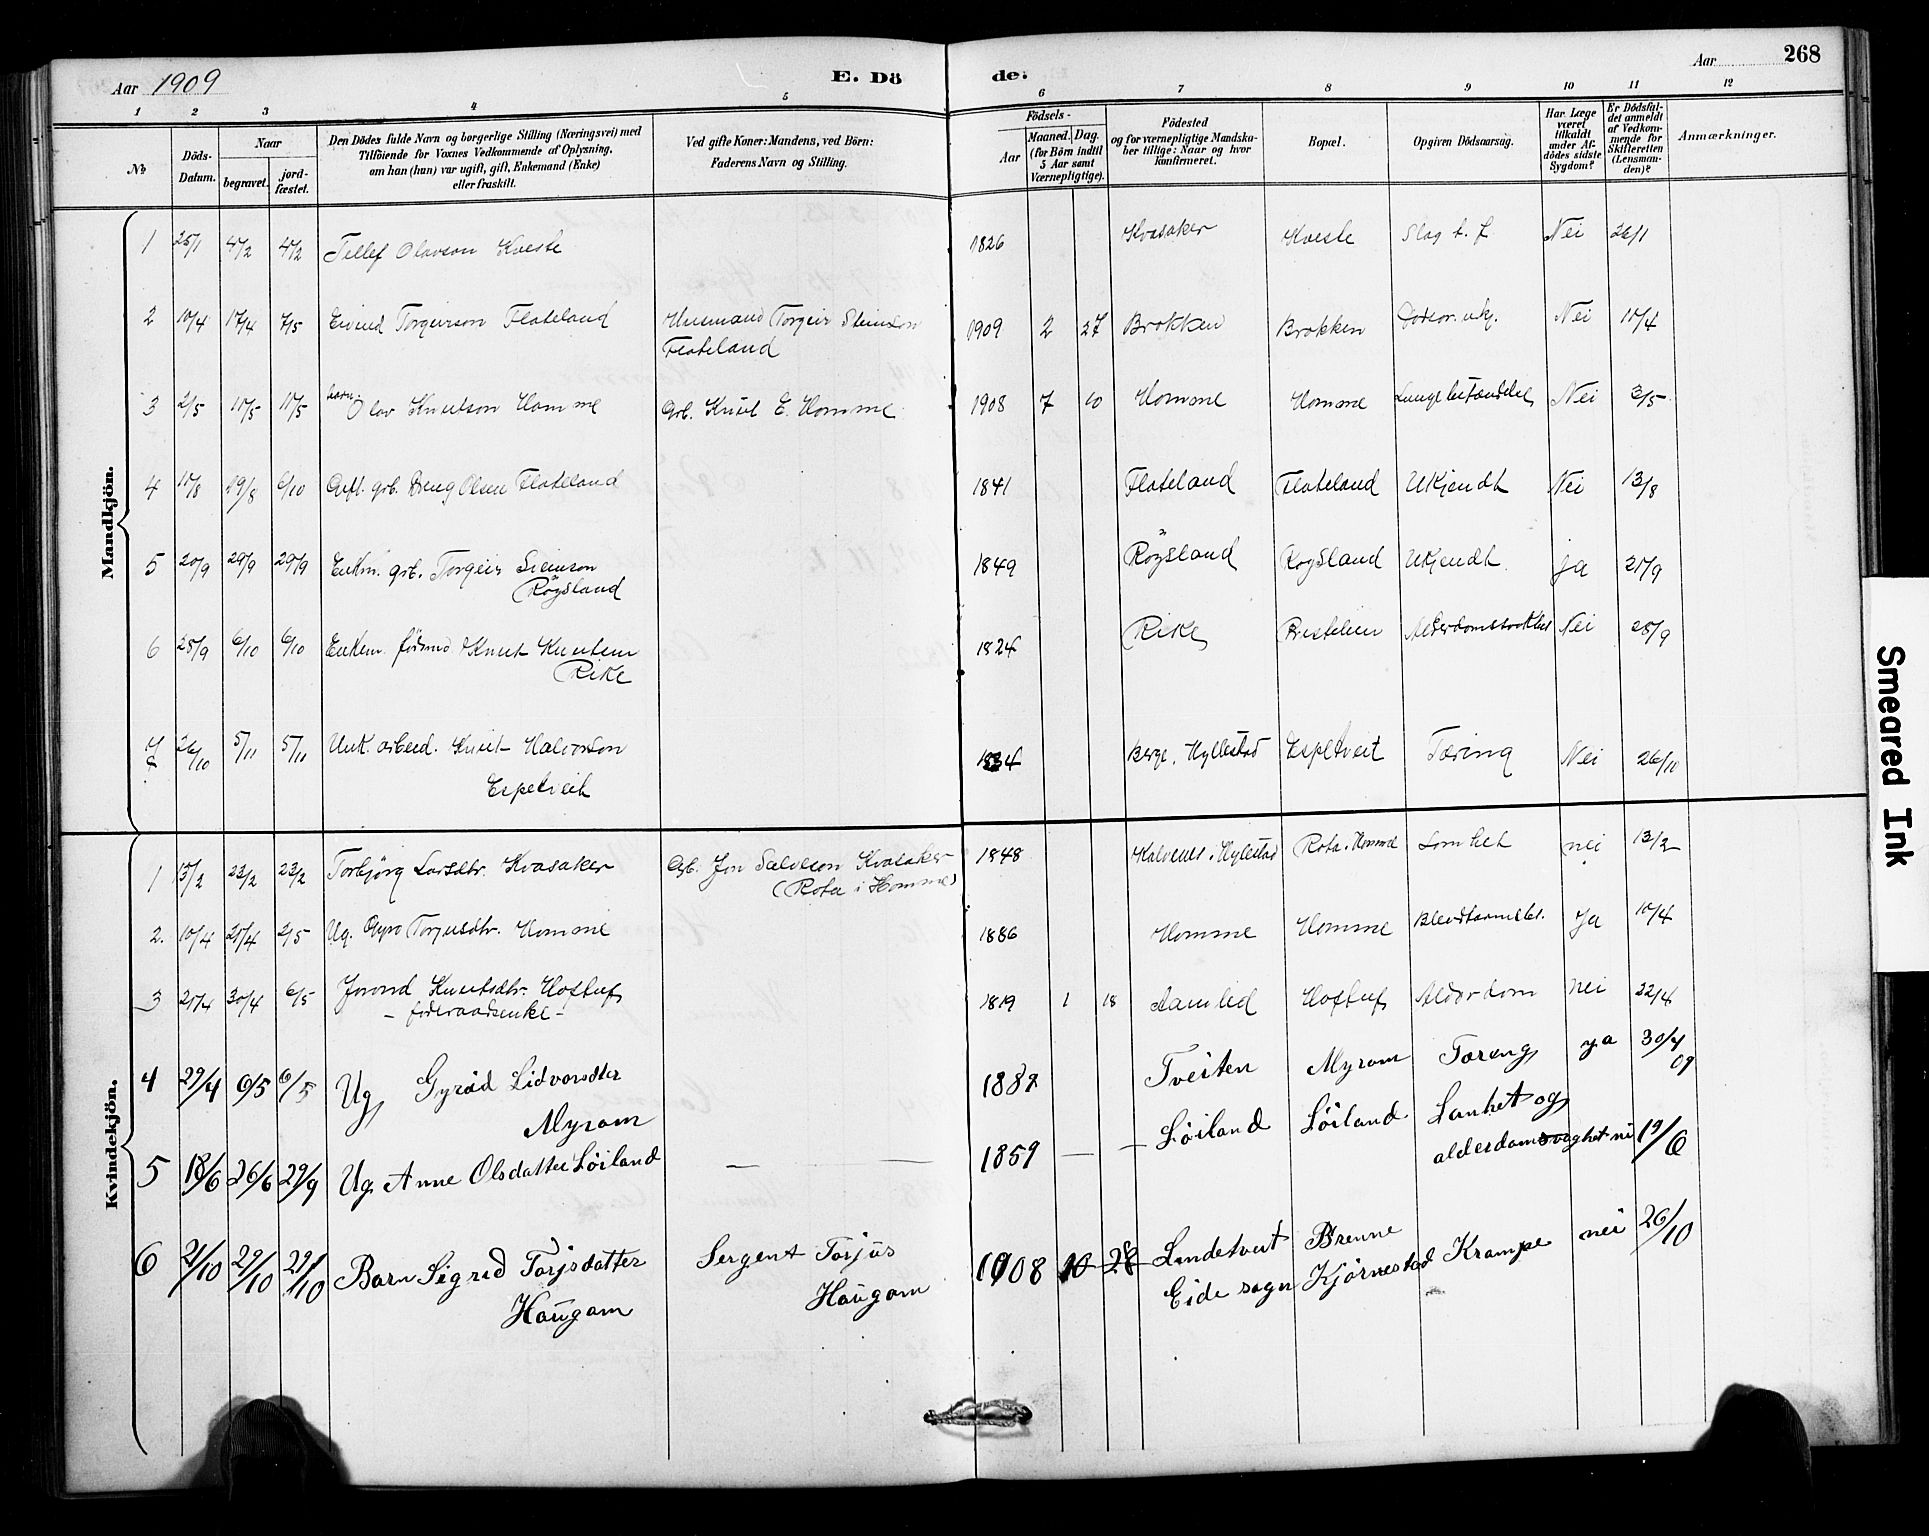 Aar 1909 E. Dö de. Aar 268
1 2 3 4 5 6 7 8 9 10 11 12
№ Döds-Datum. Naar begravet. jord-fæstet. Den Dödes fulde Navn og borgerlige Stilling (Næringsvei) med Tilföiende for Voxnes Vedkommende af Oplysning, om han (hun) var ugift, gift, Enkemand (Enke) eller fraskilt. Ved gifte Koner: Mandens, ved Börn: Faderens Navn og Stilling. Födsels- Aar Maaned. Dag. (for Börn indtil 5 Aar samt Værnepligtige). Födested og for værnepligtige Mandskaber tillige: Naar og hvor konfirmeret. Bopæl. Opgiven Dödsaarsag. Har Læge været tilkaldt under Afdödes sidste Sygdom? Er Dödsfaldet anmeldt af Vedkommende for Skifteretten (Lensmanden)? Anmærkninger.
Mandkjön.
1 25/1 4/2 4/2 Tellef Olavson Kveste 1826 Kvasaker Kveste Slag t. f. Nei 26/1
2 10/4 17/4 7/5 Eivind Torgeirson Flateland Husmand Torgeir Steinson 1909 2 27 Brokken Brokken Nei 10/4
Flateland
3 2/5 11/5 11/5 barn Olav Knutson Homme Grb. Knut E. Homme 1908 7 10 Homme Homme Lungebetændelse Nei 3/5
4 19/8 6/10 grb. Dreng Olsen Flateland 1841 Flateland Flateland Ukjendt Nei 13/8
5 20/9 29/9 29/9 Enkm. grb. Torgeir 1849 Röysland Röysland Ukjendt. Ja 21/9
Röysland
6 25/9 6/10 6/10 Enkem. Knut Knutsen 1824 Rike Alderdomssvakhet Nei 25/9
Rike
7 26/10 5/11 5/11 Unk. arbeid. Knut Halvorson 1834 Berge, Hyllestad Espetveit Tæring Nei 26/10
Espetveit
Kvindekjön.
1 13/2 23/2 23/2 Torbjörg Larsdtr. Kvasaker Grb. Jon Salveson Kvasaker 1848 Hylestad Rota i Homme nei 13/2
(Rota i Homme)
2. 10/4 21/4 2/5 Ug. Gyro Torjusdtr. Homme 1886 Homme Homme Blindtarmsbet. Ja 10/4
3 21/4 30/4 6/5 Jorond Knutsdtr. Hoftuft 1819 1 18 Aamlid Hoftuft Alderdom nei 22/4
- föderaadsenke -
4 29/4 6/5 6/5 Ug. Gyrid Lidvorsdtr 1882 Tveiten Myrom Tæreng ja 30/4 09
Myrom
5 18/6 26/6 29/9 Ug Anne Olsdatter Löiland — — 1859 — — Löiland Löiland Lanhet og
alderdomsvaghet nei 19/6
6 21/10 29/10 29/10 Barn Sigrid Torjsdatter Sergent Torjus 1908 10 28 Lindetveit Brenne Krampe nei 26/10
Haugom Haugom Eide sogn Kjörnestad
Smeared Ink